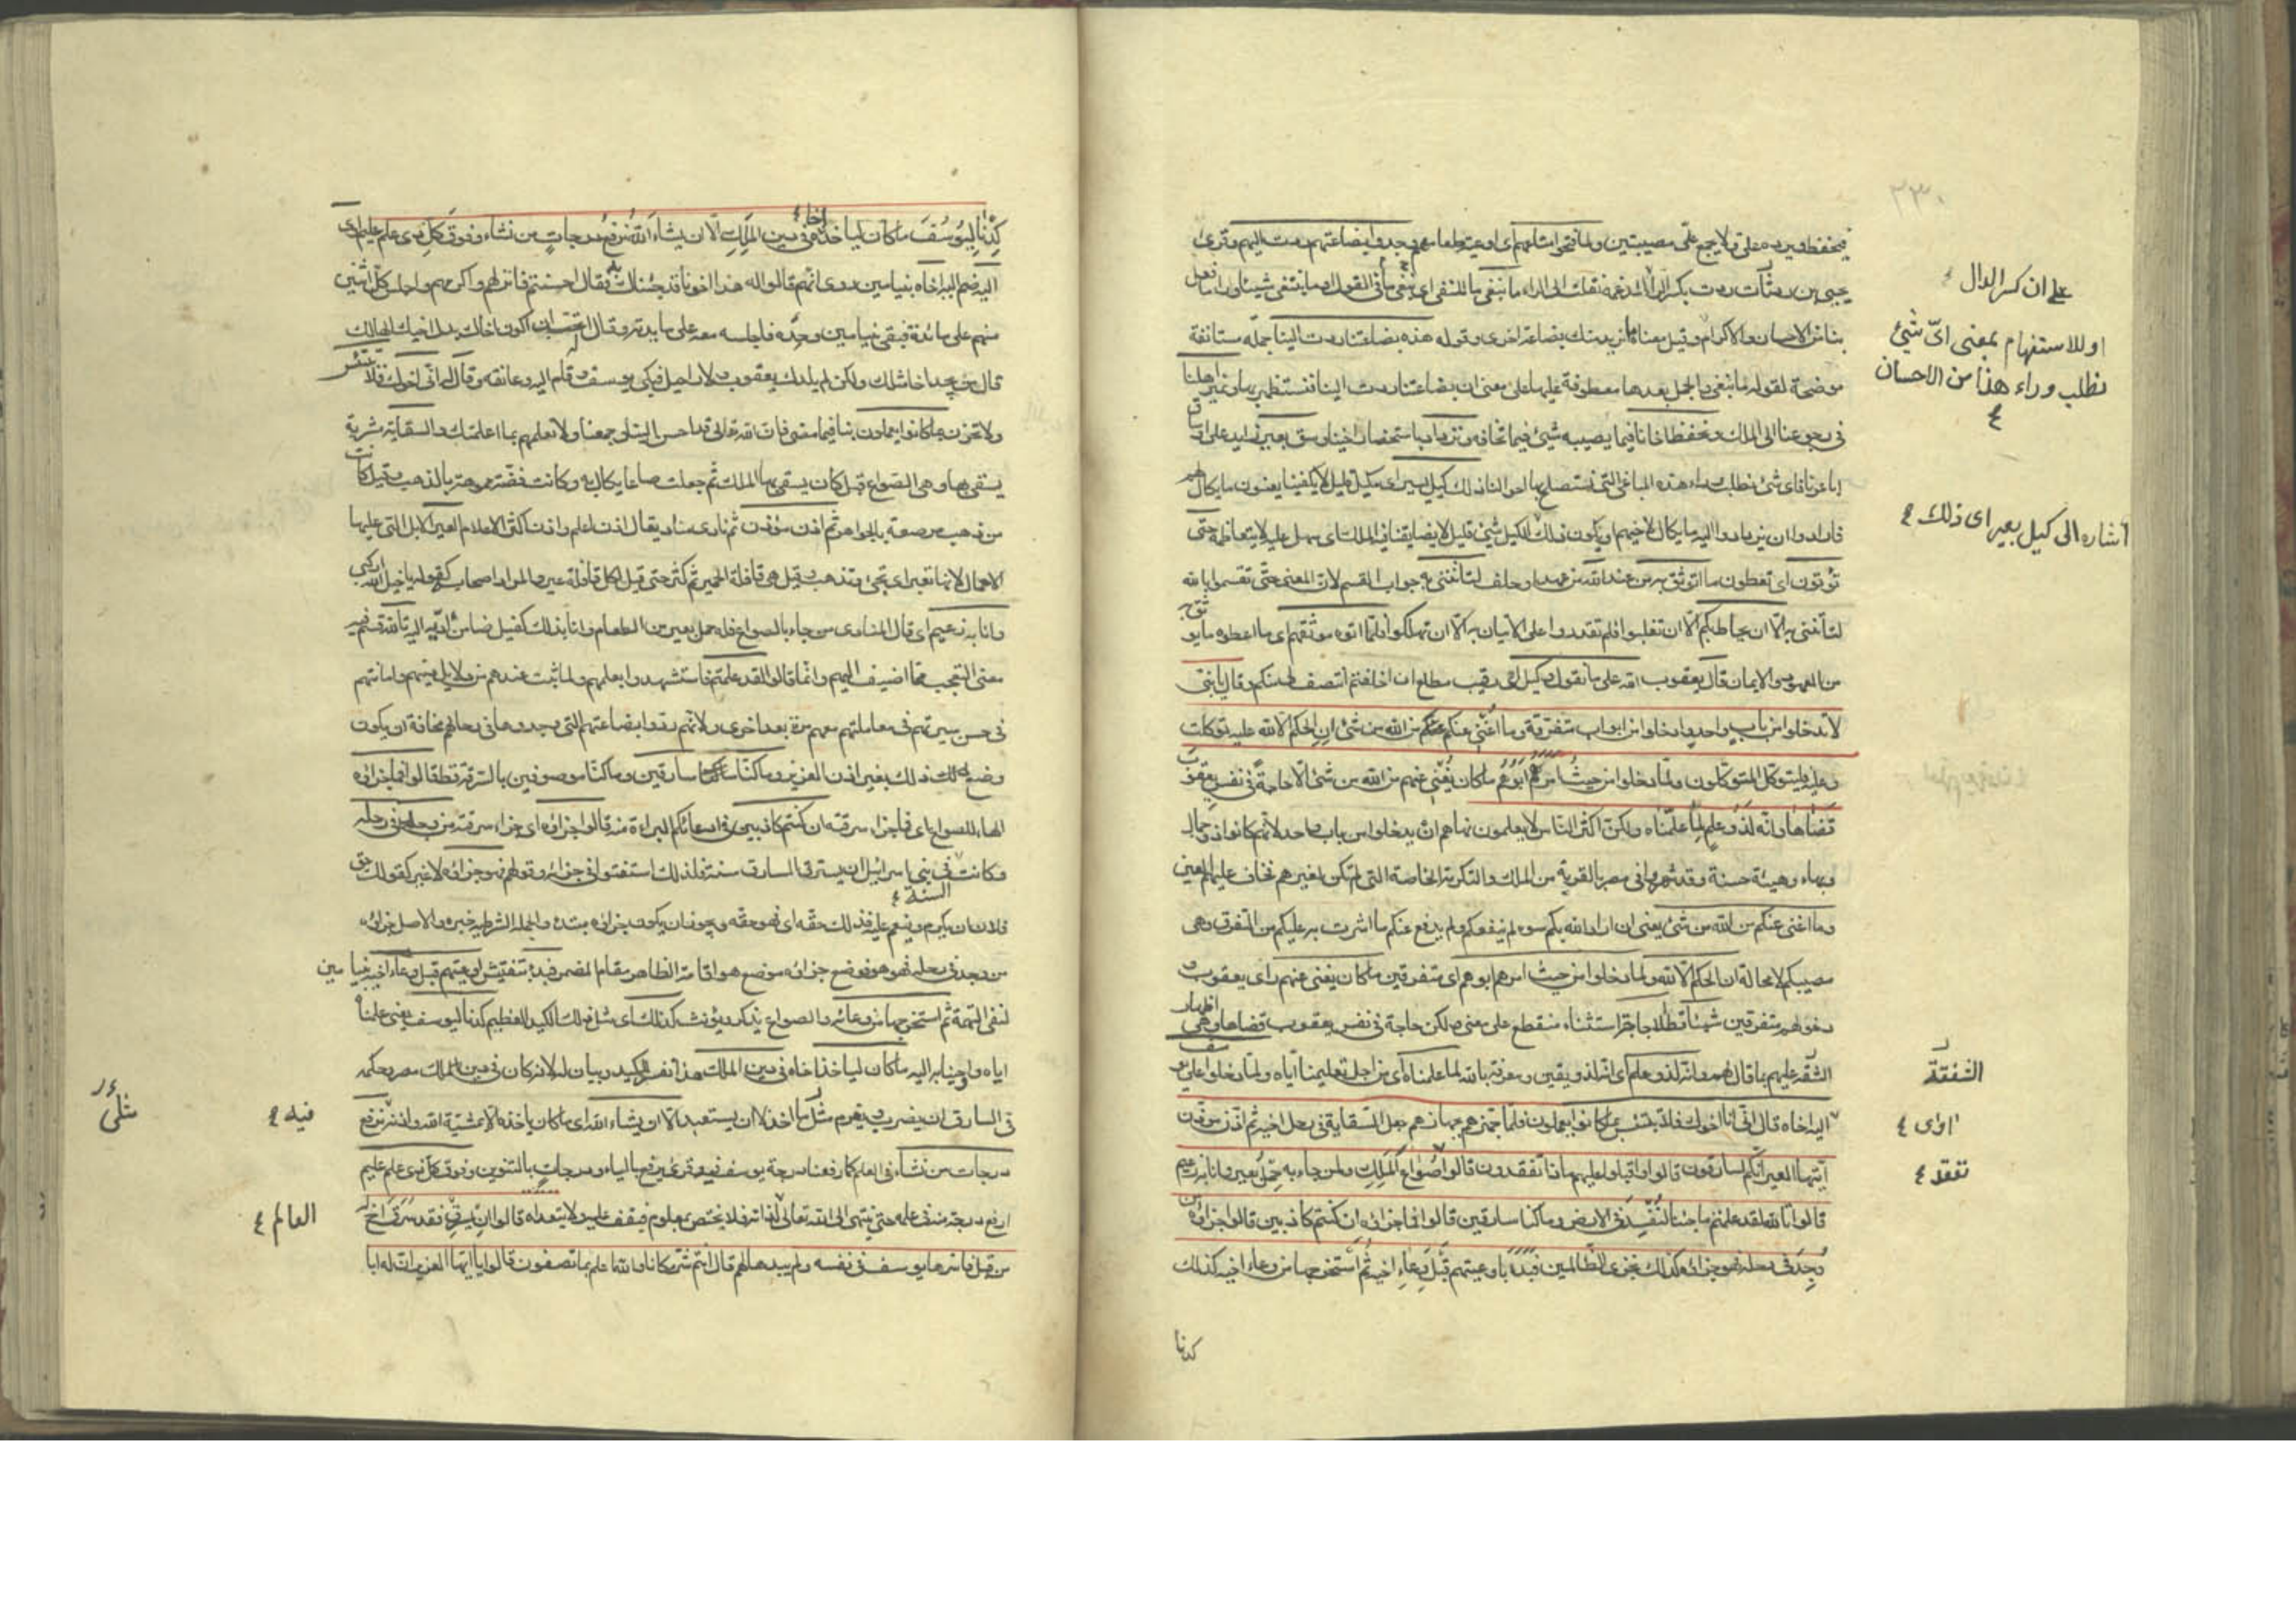 فيحفظه ويرده علي ولا يجمع علي مصيبتين ولما فتحوا متاعهم اى اوعية طعامهم وجدوا بضاعتهم ردت اليهم وقرئ
يحيى بن وثاب ردت بكسر الراء
بنا من الاحسان والاكرام وقيل معناه ما نريد منك بضاعة اخرى وقوله هذه بضاعتنا ردت الينا جملة مستانفة
موضحة لقوله ما نبغي والجمل بعدها معطوفة عليها على معنى ان بضاعتنا ردت الينا فنستظهر بها ونمير اهلنا
في رجوعنا الى الملك ونحفظ اخانا فيما يصيبه شئ فيما تخافه ونزداد باستحضار اخينا وسق بعير زايد على اوساق
اباعرنا فاى شئ نطلب وراء هذه المباغى التى نستصلح بها احوالنا ذلك كيل يسير اى مكيل قليل لا يكفينا يعنون ما يكال لهم
فارادوا ان يزدادوا اليه ما يكال لاخيهم او يكون ذلك الكيل شئ قليل لا يضايقنا فيه الملك اى سهل عليه لا يتعاظمه حتى
تؤتون اى تعطون ما اتوثق به من عند الله من عهد او حلف لتاتنني به جواب القسم لان المعنى حتى تقسموا بالله
لتاتنني به الا ان يحاط بكم الا ان تغلبوا فلم تقدروا على الاتيان به الا ان تهلكوا فلما اتوه موثقهم اى ما اعطوه ما يوثق به
من العهود والايمان قال يعقوب الله على ما نقول وكيل اى رقيب مطلع ان اخلفتم انتصف لى منكم وقال يا بني
لا تدخلوا من باب واحد وادخلوا من ابواب متفرقة وما اغنى عنكم من الله من شئ ان الحكم الا لله عليه توكلت
وعليه فليتوكل المتوكلون ولما دخلوا من حيث امرهم ابوهم ما كان يغني عنهم من الله من شئ الا حاجة في نفس يعقوب
قضاها وانه لذو علم لما علمناه ولكن اكثر الناس لا يعلمون نهاهم ان يدخلوا من باب واحد لانهم كانوا ذوى جمال
وبهاء وهيئة حسنة وقد شهروا في مصر بالقربة من الملك والتكرمة الخاصة التى لم تكن لغيرهم فخاف عليهم العين
وما اغنى عنكم من الله من شئ يعنى ان اراد الله بكم سوء لم ينفعكم ولم يدفع عنكم ما اشرت به عليكم من التفرق وهى
مصيبكم لا محالة ان الحكم الا لله ولما دخلوا من حيث امرهم ابوهم اى متفرقين ما كان يغني عنهم راى يعقوب
دخولهم متفرقين شيئا قط الا حاجة استثناء منقطع على معنى ولكن حاجة في نفس يعقوب قضاها وهى اظهار
الشفقة عليهم بما قال لهم وانه لذو علم اى انه لذو يقين ومعرفة بالله لما علمناه اى من اجل تعليمنا اياه ولما دخلوا على يوسف
اليه اخاه قال انى انا اخوك فلا تبتئس بما كانوا يعملون فلما جهزهم بجهازهم جعل السقاية في رحل اخيه ثم اذن مؤذن
ايتها العير انكم لسارقون قالوا واقبلوا عليهم ماذا تفقدون قالوا صواع الملك ولمن جاء به حمل بعير وانا به زعيم
قالوا تالله لقد علمتم ما جئنا لنفسد في الارض وما كنا سارقين قالوا فما جزاؤه ان كنتم كاذبين قالوا جزاؤه من
وجد في رحله فهو جزاؤه كذلك نجزى الظالمين فبدا باوعيتهم قبل وعاء اخيه ثم استخرجها من وعاء اخيه كذلك
كدنا
٢٣٠
على ان كسر الدال
او للاستفهام بمعنى اىّ شئ
نطلب وراء هذا من الاحسان
اشاره الى كيل بعير اى ذلك
الشفقة
اوى
تفقد
كدنا ليوسف ما كان لياخذ اخاه في دين الملك الا ان يشاء الله نرفع درجات من نشاء وفوق كل ذى علم عليم اوى
اليه ضم اليه اخاه بنيامين روى انهم قالوا له هذا اخونا قد جئناك به فقال احسنتم فانزلهم واكرمهم واجلس كل اثنين
منهم على مائدة فبقى بنيامين وحده فاجلسه معه على مايدته وقال اتحب ان اكون اخاك بدل اخيك الهالك
قال من يجد اخا مثلك ولكن لم يلدك يعقوب ولا راحيل فبكى يوسف وقام اليه وعانقه وقال انى انا اخوك فلا تبتئس
ولا تحزن بما كانوا يعملون بنا فيما مضى فان الله تعالى قد احسن الينا وجمعنا ولا تعلمهم بما اعلمتك والسقاية مشربة
يسقى بها وهى الصواع قيل كان يسقى بها الملك ثم جعلت صاعا يكال به وكانت فضة مموهة بالذهب وقيل كانت
من ذهب مرصعة بالجواهر ثم اذن مؤذن ثم نادى مناد يقال اذن اعلم واذن اكثر الاعلام العير الابل التى عليها
الاحمال لانها تعير اى تجئ وتذهب وقيل هى قافلة الحمير ثم كثر حتى قيل لكل قافلة عير والمراد اصحاب العير كقوله يا خيل الله اركبى
وانا به زعيم اى قال المنادى من جاء بالصواع فله حمل بعير من الطعام وانا بذلك كفيل ضامن اؤديه اليه تالله قسم فيه
معنى التعجب مما اضيف اليهم وانما قالوا لقد علمتم فاستشهدوا بعلمهم لما ثبت عندهم من دلايل دينهم وامانتهم
في حسن سيرتهم في معاملتهم معهم مرة بعد اخرى ولانهم ردوا بضاعتهم التى وجدوها في رحالهم مخافة ان يكون
وضع ذلك بغير اذن العزيز وما كنا سارقين وما كنا موصوفين بالسرقة قط قالوا فما جزاؤه
الهاء للصواع اى فما جزاء سرقته ان كنتم كاذبين في ادعائكم البراءة منه قالوا جزاؤه اى جزاء سرقته من وجد في رحله
وكانت في بنى اسرائيل ان يسترق السارق سنة فلذلك استفتوا في جزائه وقولهم فهو جزاؤه لا غير كقولك حق
فلان ان يكرم وينعم عليه فذلك حقه اى فهو حقه ويجوز ان يكون جزاؤه مبتدء والجملة الشرطية خبره والاصل جزاؤه
من وجد في رحله فهو هو فوضع جزاؤه موضع هو اقامة الظاهر مقام المضمر فبدا بتفتيش اوعيتهم قبل وعاء اخيه بنيامين
لنفى التهمة ثم استخرجها من وعائه والصواع يذكر ويؤنث كذلك اى مثل ذلك الكيد العظيم كدنا ليوسف يعنى علمناه
اياه واوحينا به اليه ما كان لياخذ اخاه في دين الملك هذا تفسير للكيد وبيان له لانه كان في دين ملك مصر وحكمه
في السارق ان يضرب ويغرم مثلى ما اخذ لا ان يستعبد الا ان يشاء الله اى ما كان ياخذه الا بمشية الله واذنه نرفع
درجات من نشاء في العلم كما رفعنا درجة يوسف فيه وقرئ يرفع بالياء ودرجات بالتنوين وفوق كل ذى علم عليم
ارفع درجة منه في علمه حتى ينتهى الى الله تعالى العالم لذاته فلا يختص بمعلوم فيقف عليه ولا يتعداه قالوا ان يسرق فقد سرق اخ له
من قبل فاسرها يوسف في نفسه ولم يبدها لهم قال انتم شر مكانا والله اعلم بما تصفون قالوا يا ايها العزيز ان له ابا
السنة
فيه
مثلى
العالم